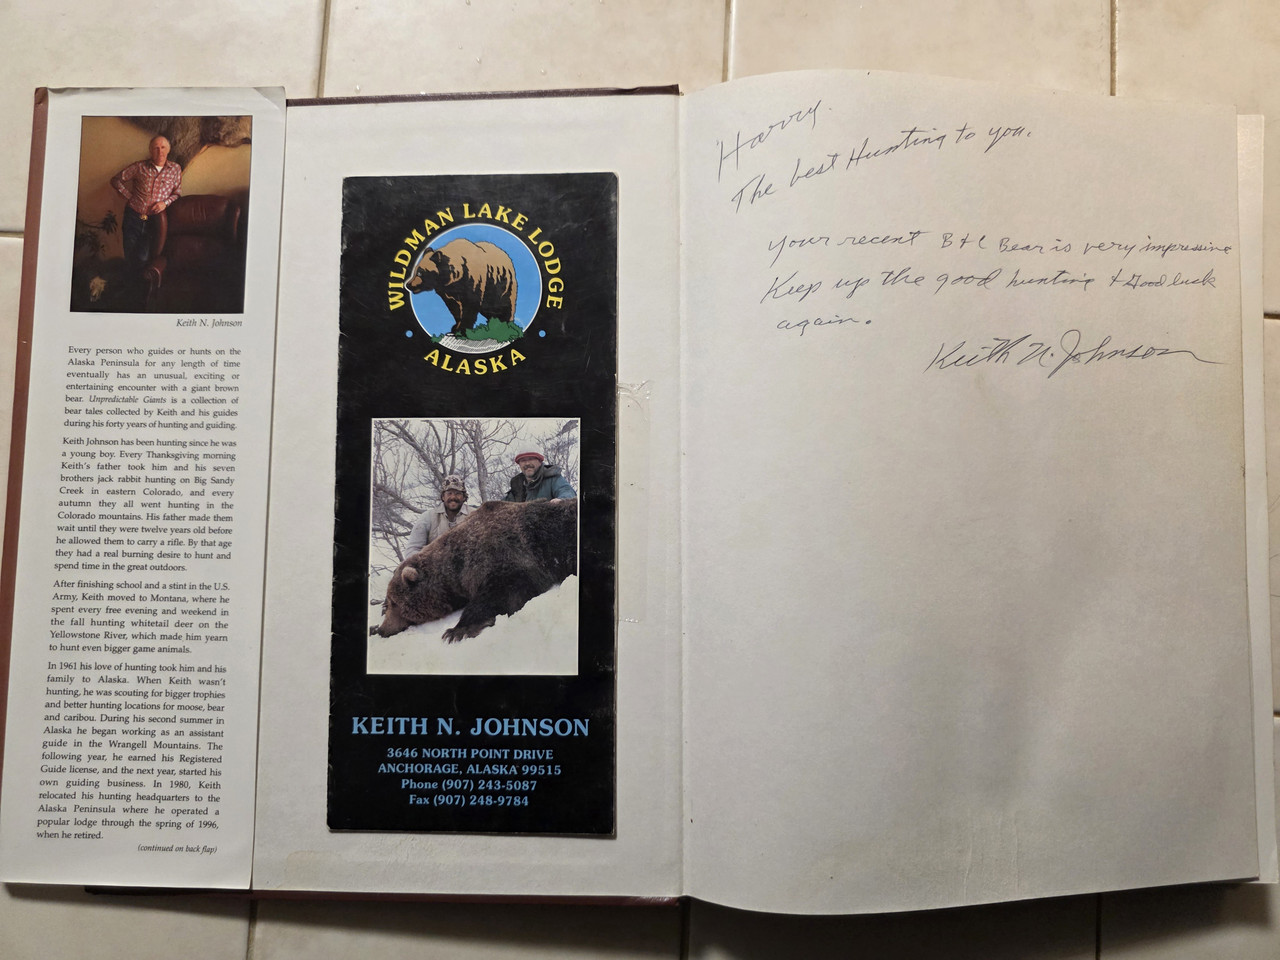 Keith N. Johnson
Every person who guides or hunts on the
Alaska Peninsula for any length of time
eventually has an unusual, exciting or
entertaining encounter with a giant brown
bear. Unpredictable Giants is a collection of
bear tales collected by Keith and his guides
during his forty years of hunting and guiding.
Keith Johnson has been hunting since he was
a young boy. Every Thanksgiving morning
Keith's father took him and his seven
brothers jack rabbit hunting on Big Sandy
Creek in eastern Colorado, and every
autumn they all went hunting in the
Colorado mountains. His father made them
wait until they were twelve years old before
he allowed them to carry a rifle. By that age
they had a real burning desire to hunt and
spend time in the great outdoors.
After finishing school and a stint in the U.S.
Army, Keith moved to Montana, where he
spent every free evening and weekend in
the fall hunting whitetail deer on the
Yellowstone River, which made him yearn
to hunt even bigger game animals.
In 1961 his love of hunting took him and his
family to Alaska. When Keith wasn't
hunting, he was scouting for bigger trophies
and better hunting locations for moose, bear
and caribou. During his second summer in
Alaska he began working as an assistant
guide in the Wrangell Mountains. The
following year, he earned his Registered
Guide license, and the next year, started his
own guiding business. In 1980, Keith
relocated his hunting headquarters to the
Alaska Peninsula where he operated a
popular lodge through the spring of 1996,
when he retired.
(continued on back flap)
WILDMAN LAKE LODGE
• ALASKA •
KEITH N. JOHNSON
3646 NORTH POINT DRIVE
ANCHORAGE, ALASKA 99515
Phone (907) 243-5087
Fax (907) 248-9784
Harry.
The best Hunting to you.
Your recent B+C Bear is very impressive
Keep up the good hunting + Good luck
again.
Keith N. Johnson